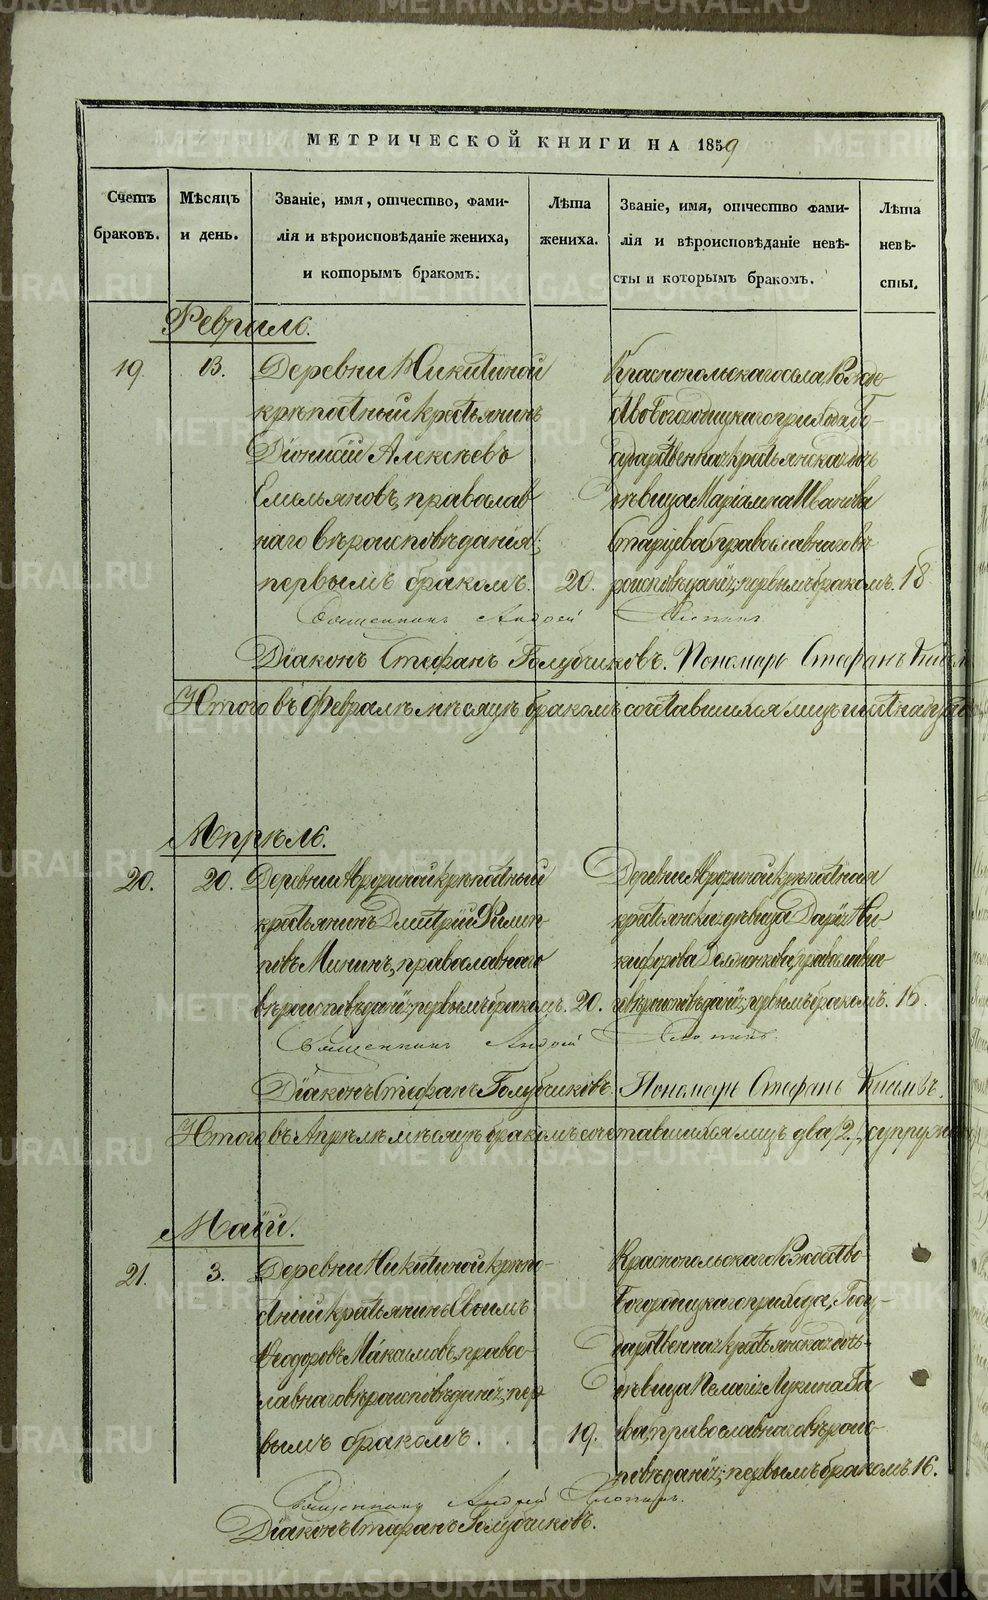 METRIKI.GASO-URAL.RU
МЕТРИЧЕСКОЙ КНИГИ НА 1859
Счетъ браковъ.
Мѣсяцъ и день.
Званіе, имя, отчество, фами-
лія и вѣроисповѣданіе жениха,
и которымъ бракомъ.
Лѣта жениха.
Званіе, имя, отчество фами-
лія и вѣроисповѣданіе невѣ-
сты и которымъ бракомъ.
Лѣта невѣ-
сты.
Февраль.
19. 13.
Деревни Никитиной
крѣпостный крестьянинъ
Діонисій Алексѣевъ
Емельяновъ, православ
наго вѣроисповѣданія;
первымъ бракомъ. 20.
Краснопольскаго села Рожде-
ство Богородицкаго прихода Го-
сударственная крестьянская дочь
дѣвица Маріамна Иванова
Старцева православнаго вѣ
роисповѣданія; первымъ бракомъ. 18
Священникъ Андрей
Діаконъ Стефанъ Голубчиковъ. Пономарь Стефанъ
Итого въ Февралѣ мѣсяцѣ бракомъ сочетавшихся лицъ
Апрѣль.
20. 20.
Деревни крѣпостный
крестьянинъ Дмитрій Филип
повъ Мининъ, православнаго
вѣроисповѣданія; первымъ бракомъ. 20.
Деревни крѣпостная
крестьянская дѣвица Дарія Ни
кифорова православна
го вѣроисповѣданія; первымъ бракомъ. 16.
Священникъ Андрей
Діаконъ Стефанъ Голубчиковъ. Пономарь Стефанъ
Итого въ Апрѣлѣ мѣсяцѣ бракомъ сочетавшихся лицъ два /2./
Маій.
21. 3.
Деревни Никитиной крѣпо-
стный крестьянинъ Евѳимъ
Ѳеодоровъ Максимовъ, право-
славнаго вѣроисповѣданія; пер
вымъ бракомъ. . . 19.
Краснопольскаго Рождество-
Богородицкаго прихода, Госу-
дарственная крестьянская дочь-
дѣвица Пелагія Лукина Га
ева, православнаго вѣроис-
повѣданія; первымъ бракомъ. 16.
Священникъ Андрей
Діаконъ Стефанъ Голубчиковъ.